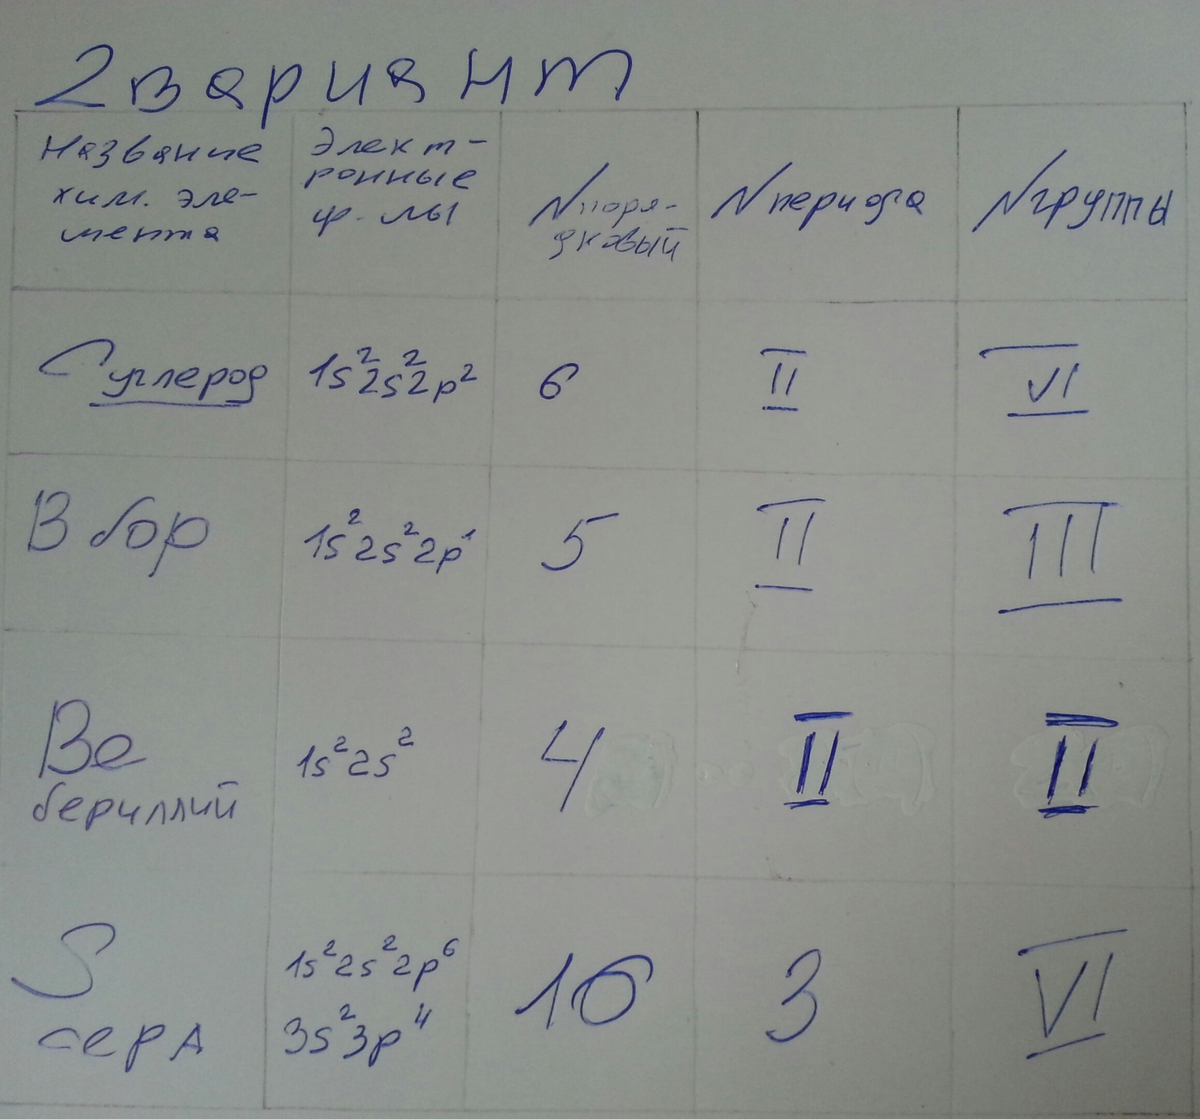 2 вариант
Название
хим. эле-
мента
Элект-
ронные
ф-лы
N поря-
дковый
N периода
N группы
C углерод
1s²2s²2p²
6
II
VI
B бор
1s²2s²2p¹
5
II
III
Be
бериллий
1s²2s²
4
II
II
S
сера
1s²2s²2p⁶
3s²3p⁴
16
3
VI